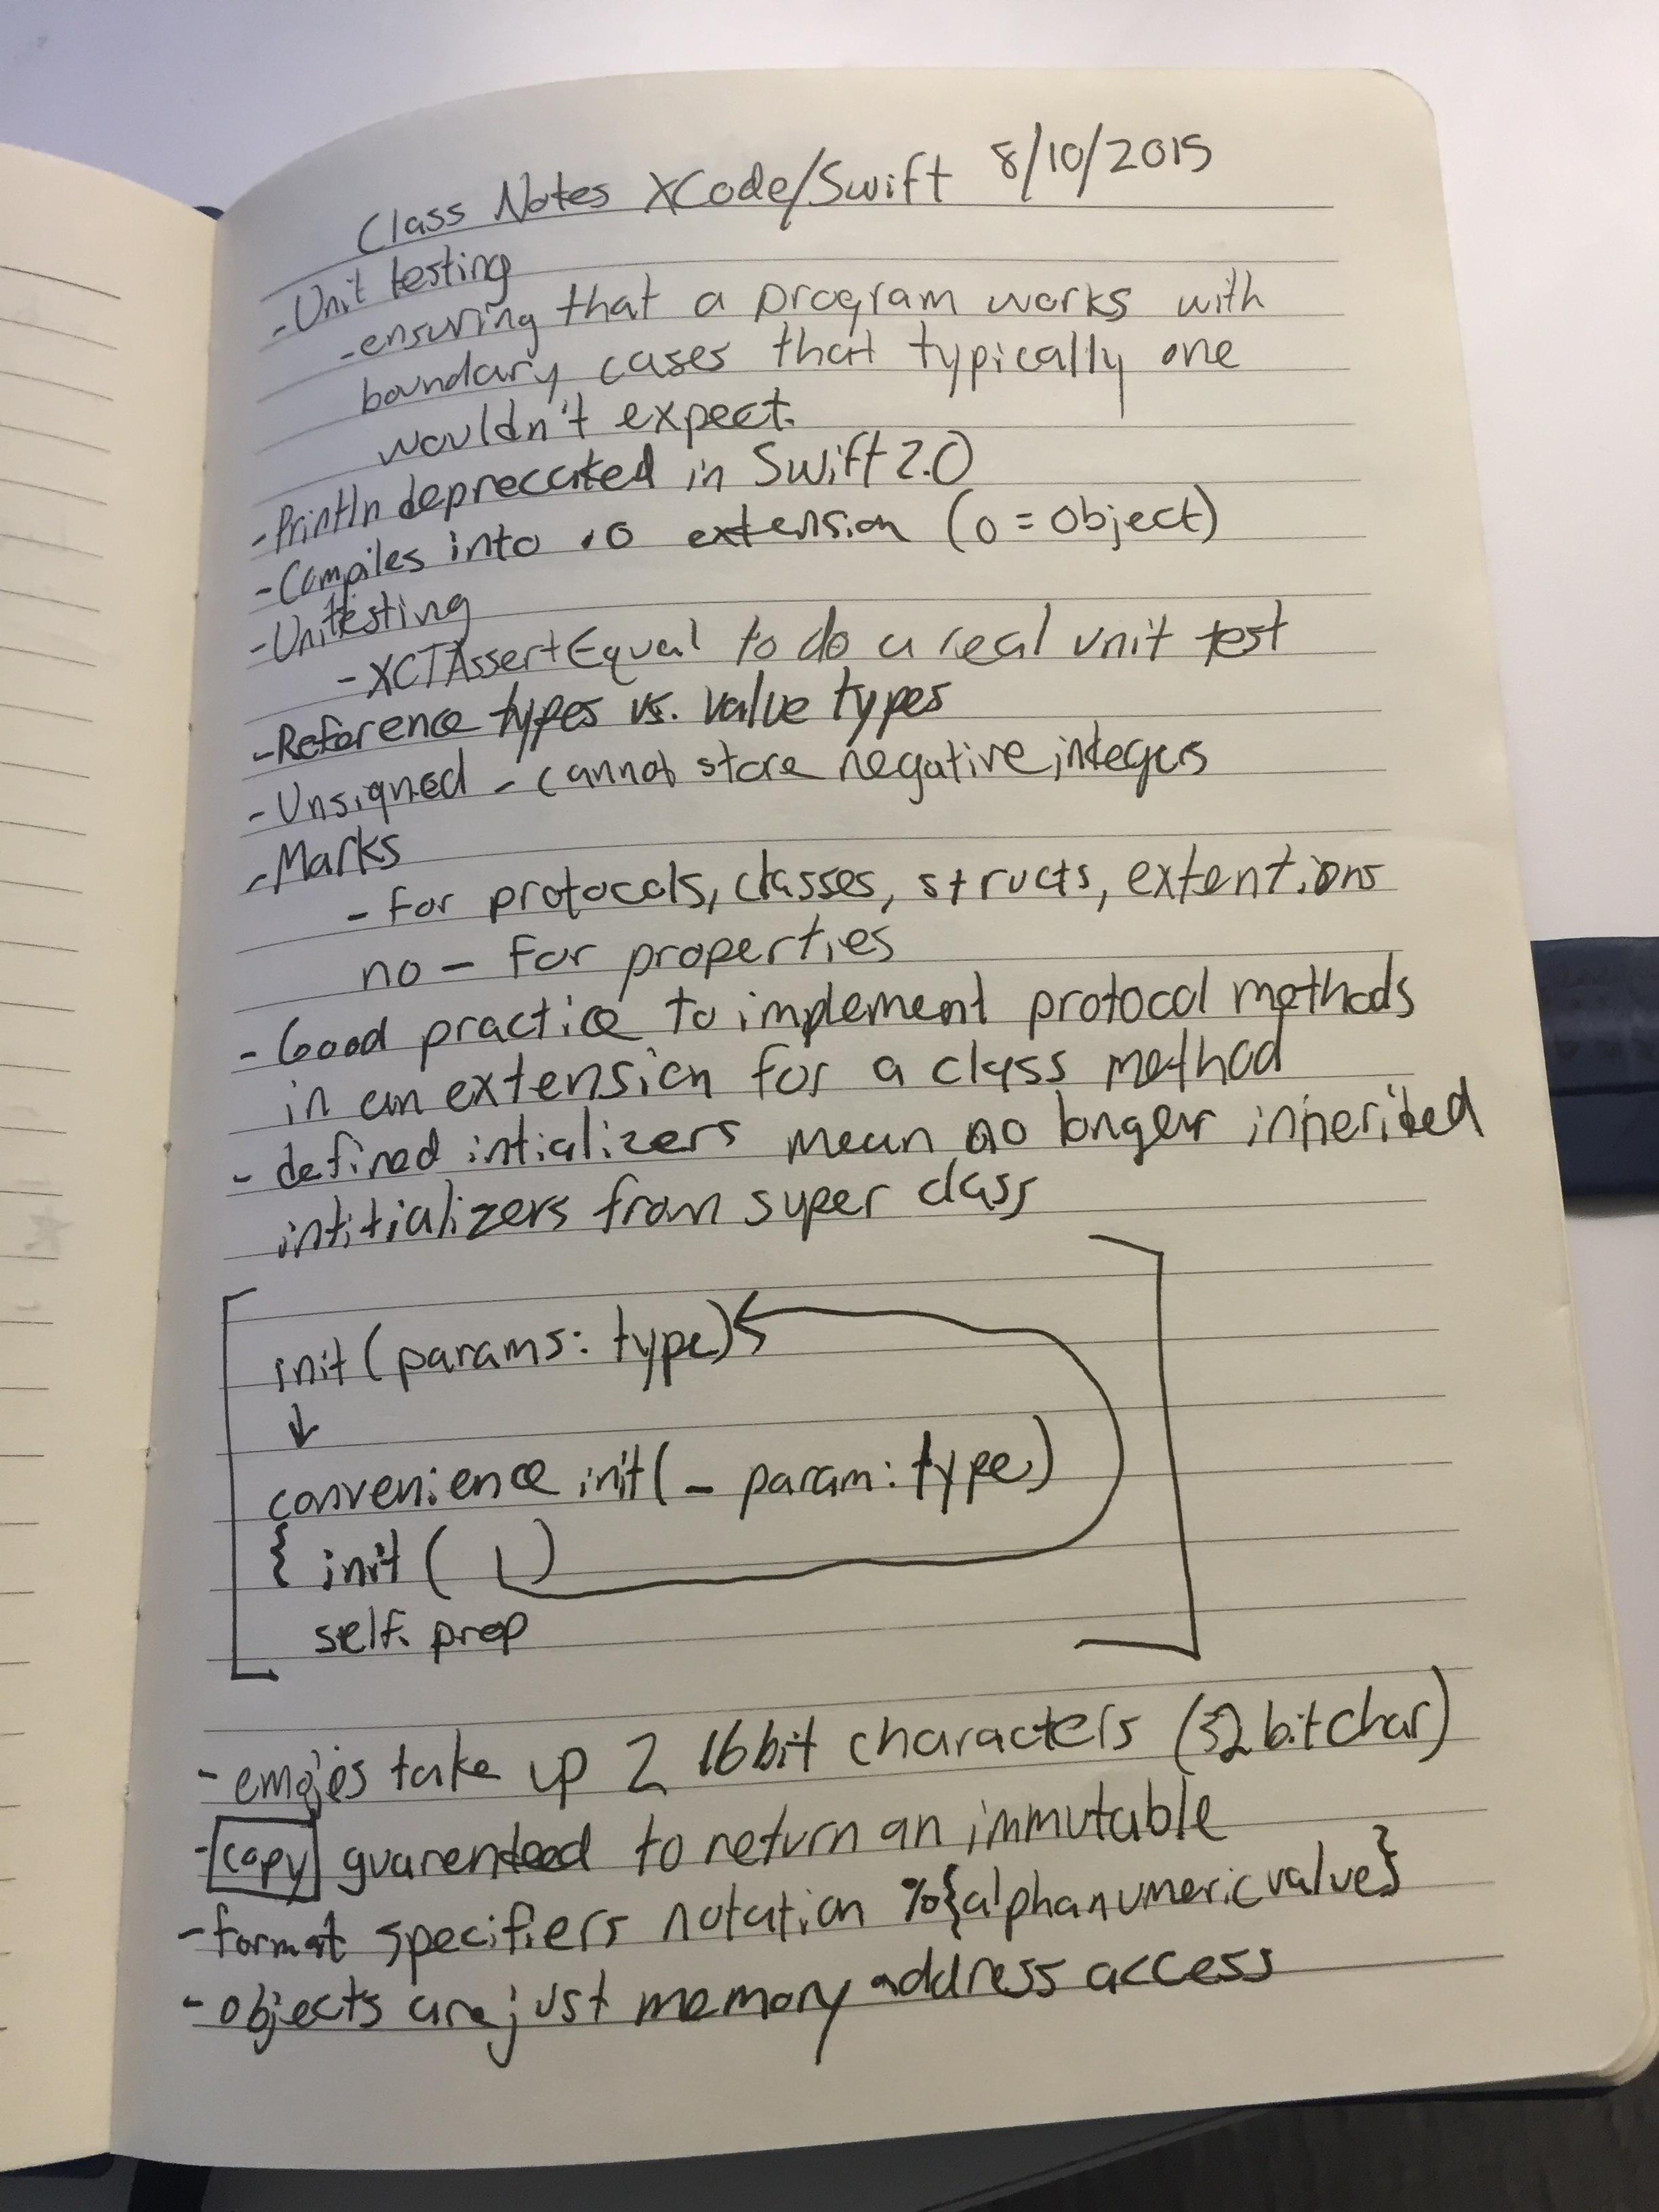 Class Notes XCode/Swift 8/10/2015
- Unit testing
- ensuring that a program works with
boundary cases that typically one
wouldn't expect.
- Println deprecated in Swift 2.0
- Compiles into .o extension (o = object)
- Unit testing
- XCTAssertEqual to do a real unit test
- Reference types vs. value types
- Unsigned - cannot store negative integers
- Marks
- for protocols, classes, structs, extentions
no - for properties
- Good practice to implement protocol methods
in an extension for a class method
- defined intializers mean no longer inherited
intitializers from super class
init (params: type)
↓
convenience init( _ param: type)
{ init ( )
self. prop
- emojies take up 2 16bit characters (32 bit char)
- copy guarenteed to return an immutable
- format specifiers notation %{alphanumeric value}
- objects are just memory address access